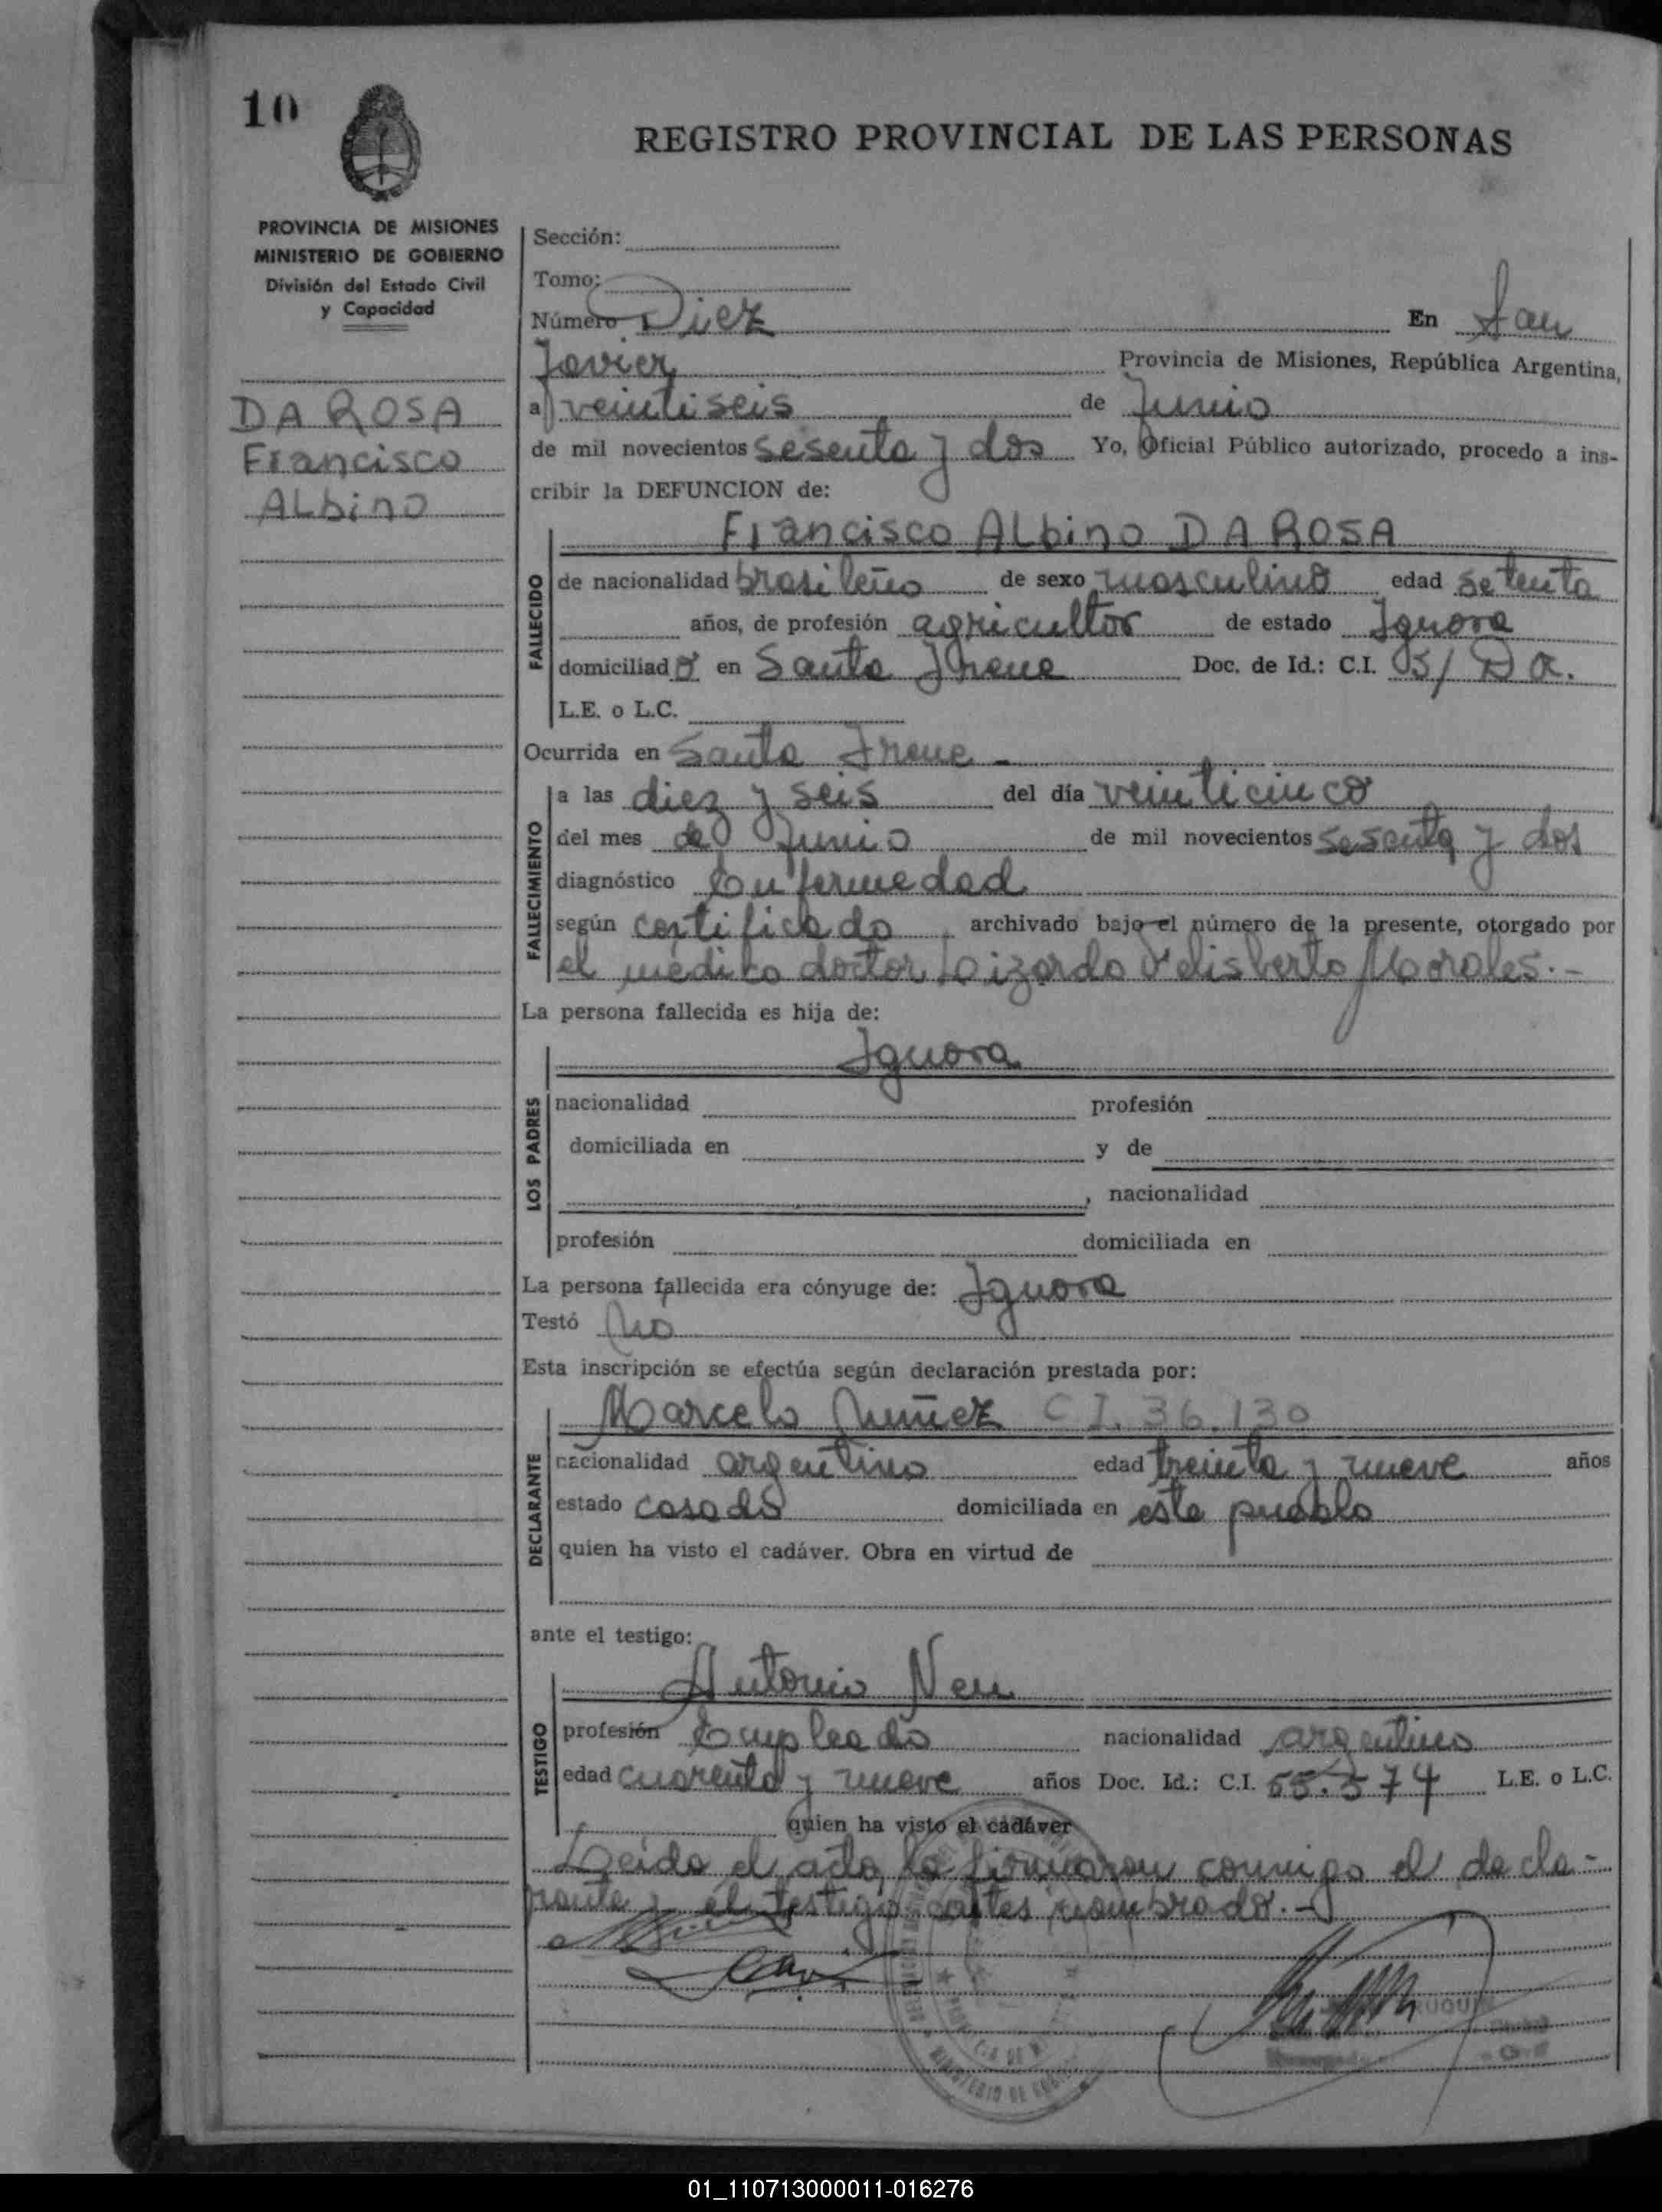 10
REGISTRO PROVINCIAL DE LAS PERSONAS
PROVINCIA DE MISIONES
MINISTERIO DE GOBIERNO
División del Estado Civil
y Capacidad
DA ROSA
Francisco
ALbino
Sección:
Tomo:
Número Diez En San
Javier Provincia de Misiones, República Argentina,
a veintiseis de Junio
de mil novecientos sesenta y dos Yo, Oficial Público autorizado, procedo a ins-
cribir la DEFUNCION de:
Francisco ALbino DA ROSA
FALLECIDO
de nacionalidad brasileño de sexo masculino edad setenta
años, de profesión agricultor de estado Ignora
domiciliado en Santa Irene Doc. de Id.: C.I. S/Da.
L.E. o L.C.
Ocurrida en Santa Irene -
FALLECIMIENTO
a las diez y seis del día veinticinco
del mes de Junio de mil novecientos sesenta y dos
diagnóstico Enfermedad
según certificado archivado bajo el número de la presente, otorgado por
el médico doctor Lizardo Felisberto Morales.-
La persona fallecida es hija de:
Ignora
LOS PADRES
nacionalidad profesión
domiciliada en y de
, nacionalidad
profesión domiciliada en
La persona fallecida era cónyuge de: Ignora
Testó No
Esta inscripción se efectúa según declaración prestada por:
Marcelo Nuñez C I. 36.130
DECLARANTE
nacionalidad argentino edad treinta y nueve años
estado casado domiciliada en este pueblo
quien ha visto el cadáver. Obra en virtud de
ante el testigo:
Antonio Neu
TESTIGO
profesión Empleado nacionalidad argentino
edad cuarenta y nueve años Doc. Id.: C.I. 55.574 L.E. o L.C.
quien ha visto el cadáver
Leída el acta, la firmaron conmigo el decla-
rante y el testigo antes nombrado.-
01_110713000011-016276